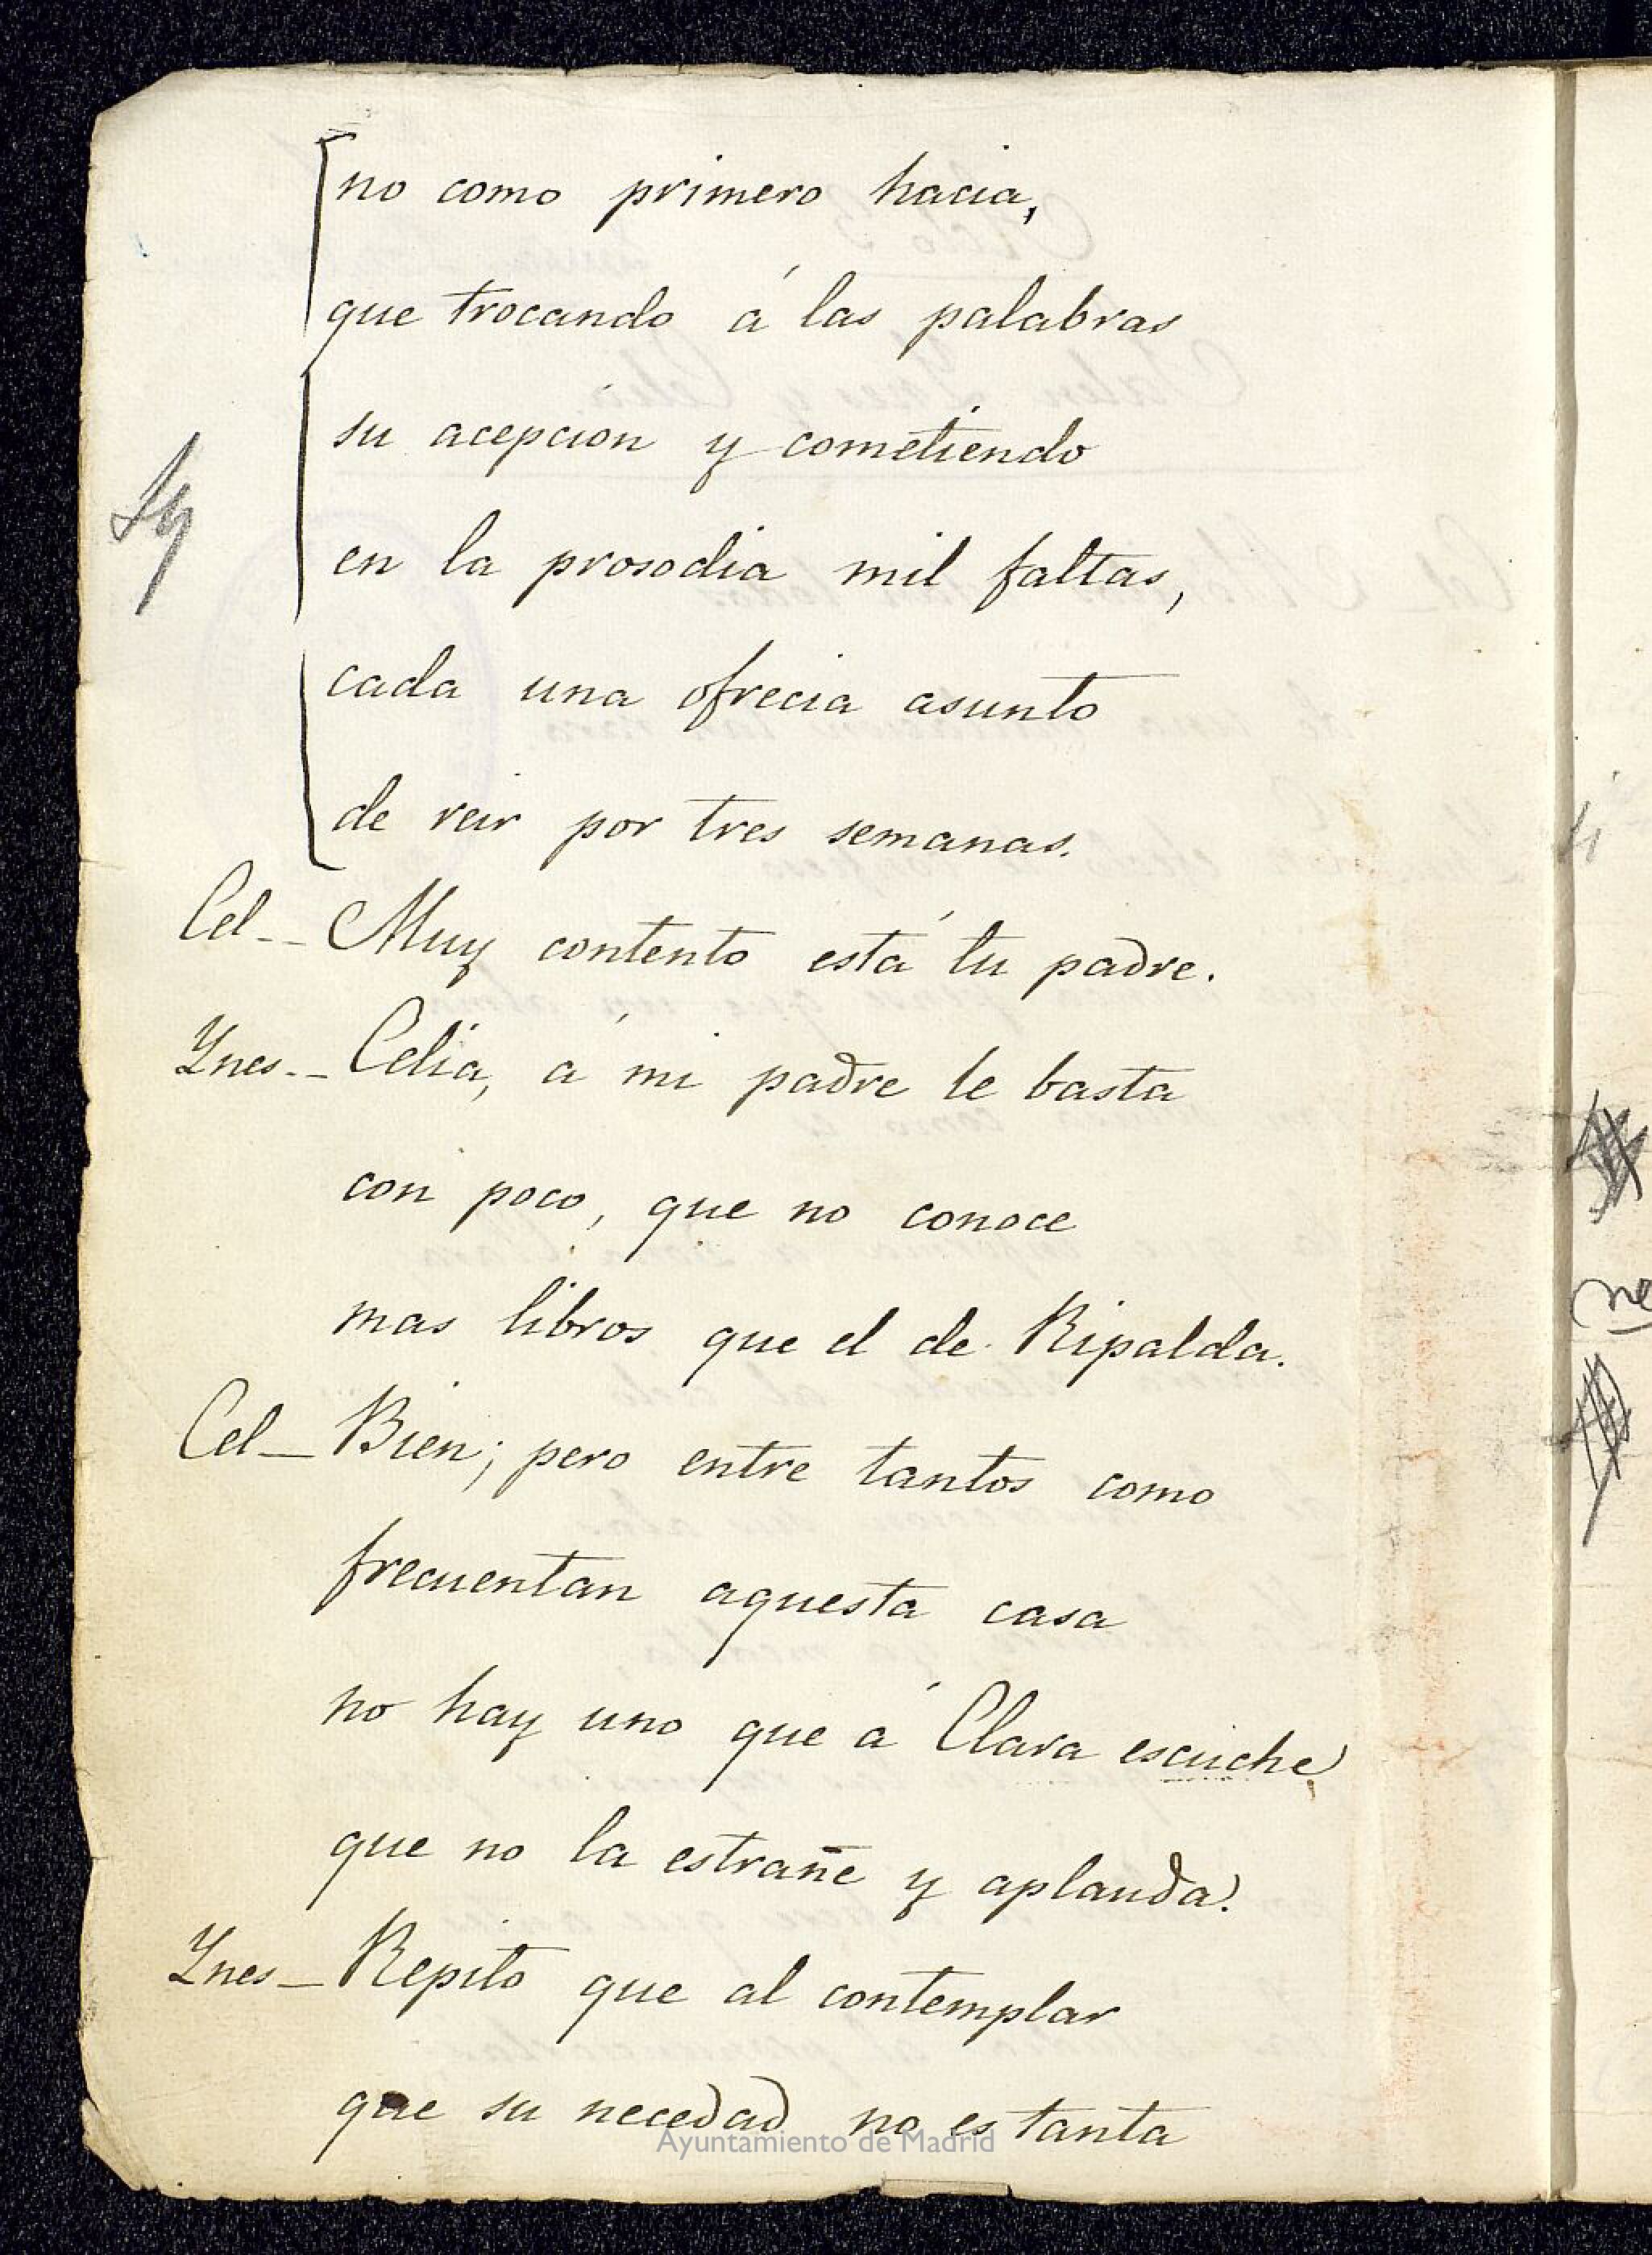 no como primero hacia,
que trocando á las palabras
su acepcion y cometiendo
en la prosodia mil faltas,
cada una ofrecia asunto
de reir por tres semanas.
Cel-- Muy contento está tu padre.
Ynes-- Celia, á mi padre le basta
con poco, que no conoce
mas libros que el de Ripalda.
Cel- Bien; pero entre tantos como
frecuentan aquesta casa
no hay uno que á Clara escuche
que no la estrañe y aplauda.
Ynes- Repito que al contemplar
que su necedad no es tanta
Ayuntamiento de Madrid